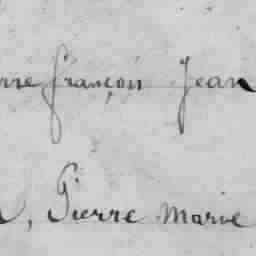 rre françois Jean
, Pierre Marie